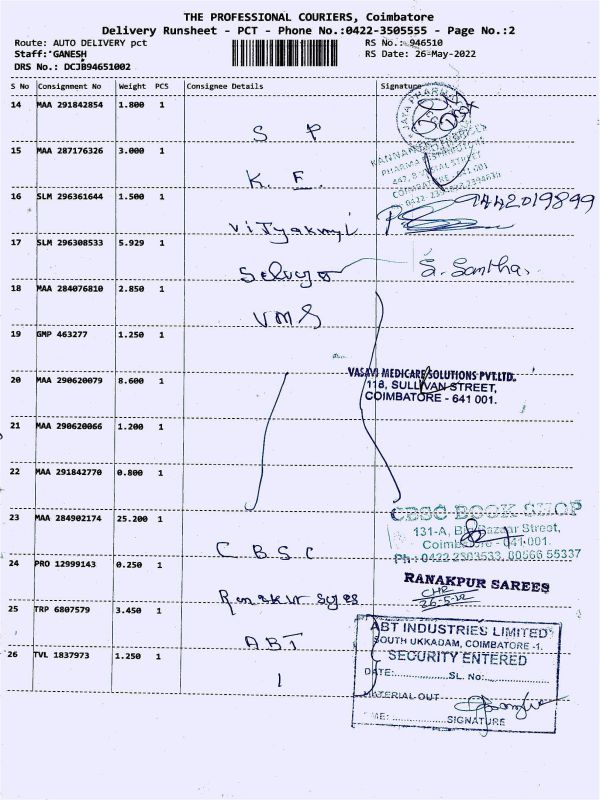 THE PROFESSIONAL COURIERS, Coimbatore
Delivery Runsheet - PCT - Phone No.:0422-3505555 - Page No.:2
Route: AUTO DELIVERY pct RS No.: 946510
Staff: GANESH RS Date: 26-May-2022
DRS No.: DCJB94651002
S No Consignment No Weight PCS Consignee Details Signature
14 MAA 291842854 1.800 1
S P
15 MAA 287176326 3.000 1
K. E.
16 SLM 296361644 1.500 1
9442019899
17 SLM 296308533 5.929 1
S. Santha.
18 MAA 284076810 2.850 1
VMS
19 GMP 463277 1.250 1
20 MAA 290620079 8.600 1
VASAVI MEDICARE SOLUTIONS PVT.LTD.
118, SULLIVAN STREET,
COIMBATORE - 641 001.
21 MAA 290620066 1.200 1
22 MAA 291842770 0.800 1
23 MAA 284902174 25.200 1
CBSC BOOK SHOP
131-A, Big Bazaar Street,
Coimbatore - 641 001.
CBSC
24 PRO 12999143 0.250 1
RANAKPUR SAREES
25 TRP 6807579 3.450 1
ABT
ABT INDUSTRIES LIMITED
SOUTH UKKADAM, COIMBATORE -1.
SECURITY ENTERED
26 TVL 1837973 1.250 1
DATE: SL. No:
MATERIAL OUT
SIGNATURE